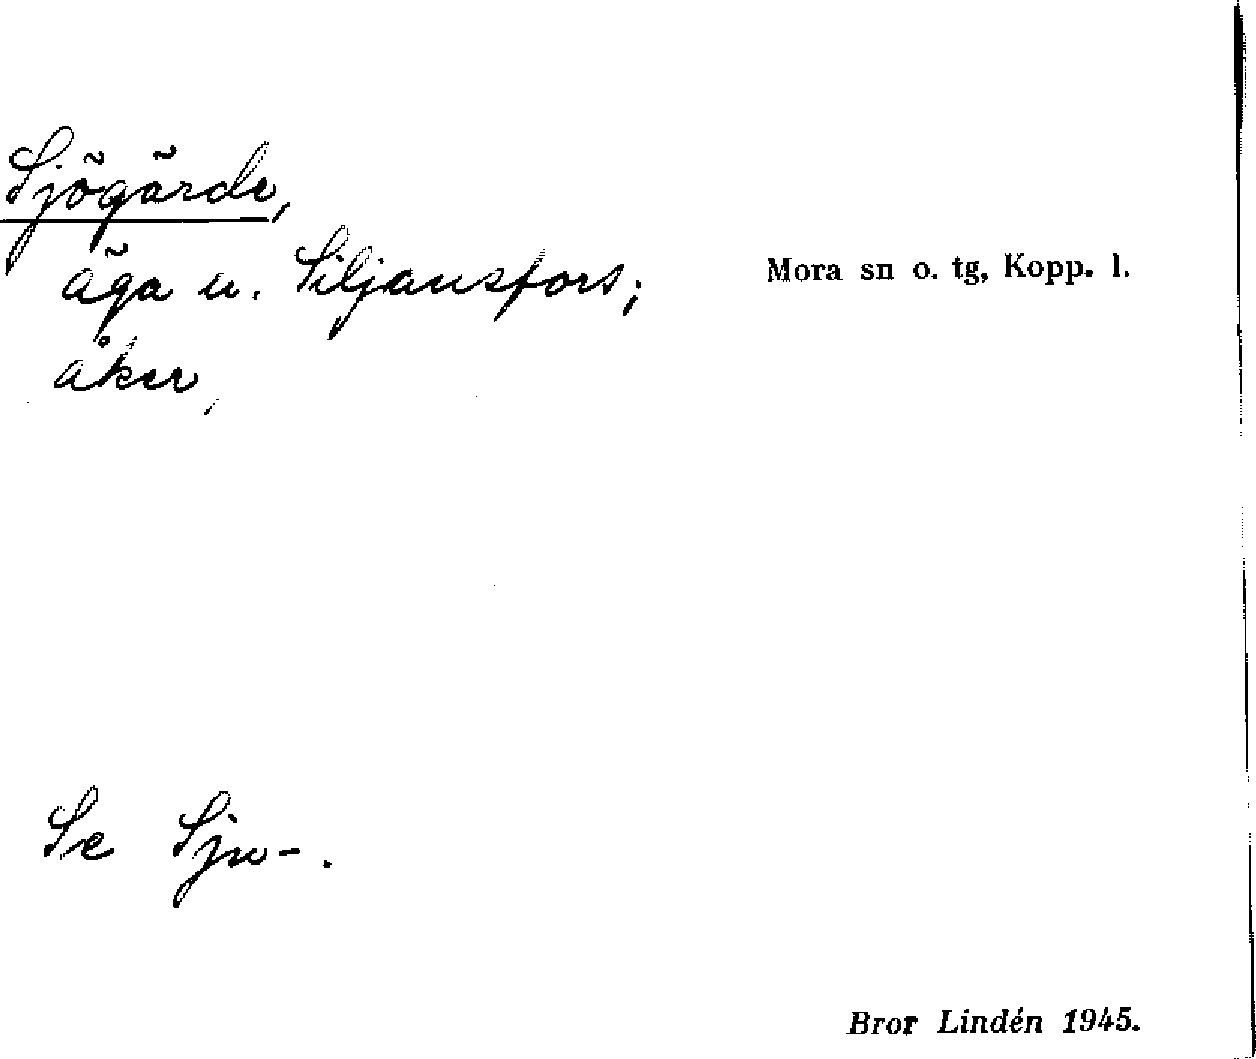 Sjögärde,
äga u. Siljansfors;
Mora sn o. tg, Kopp. l.
åker,
Se Sju-.
Bror Lindén 1945.